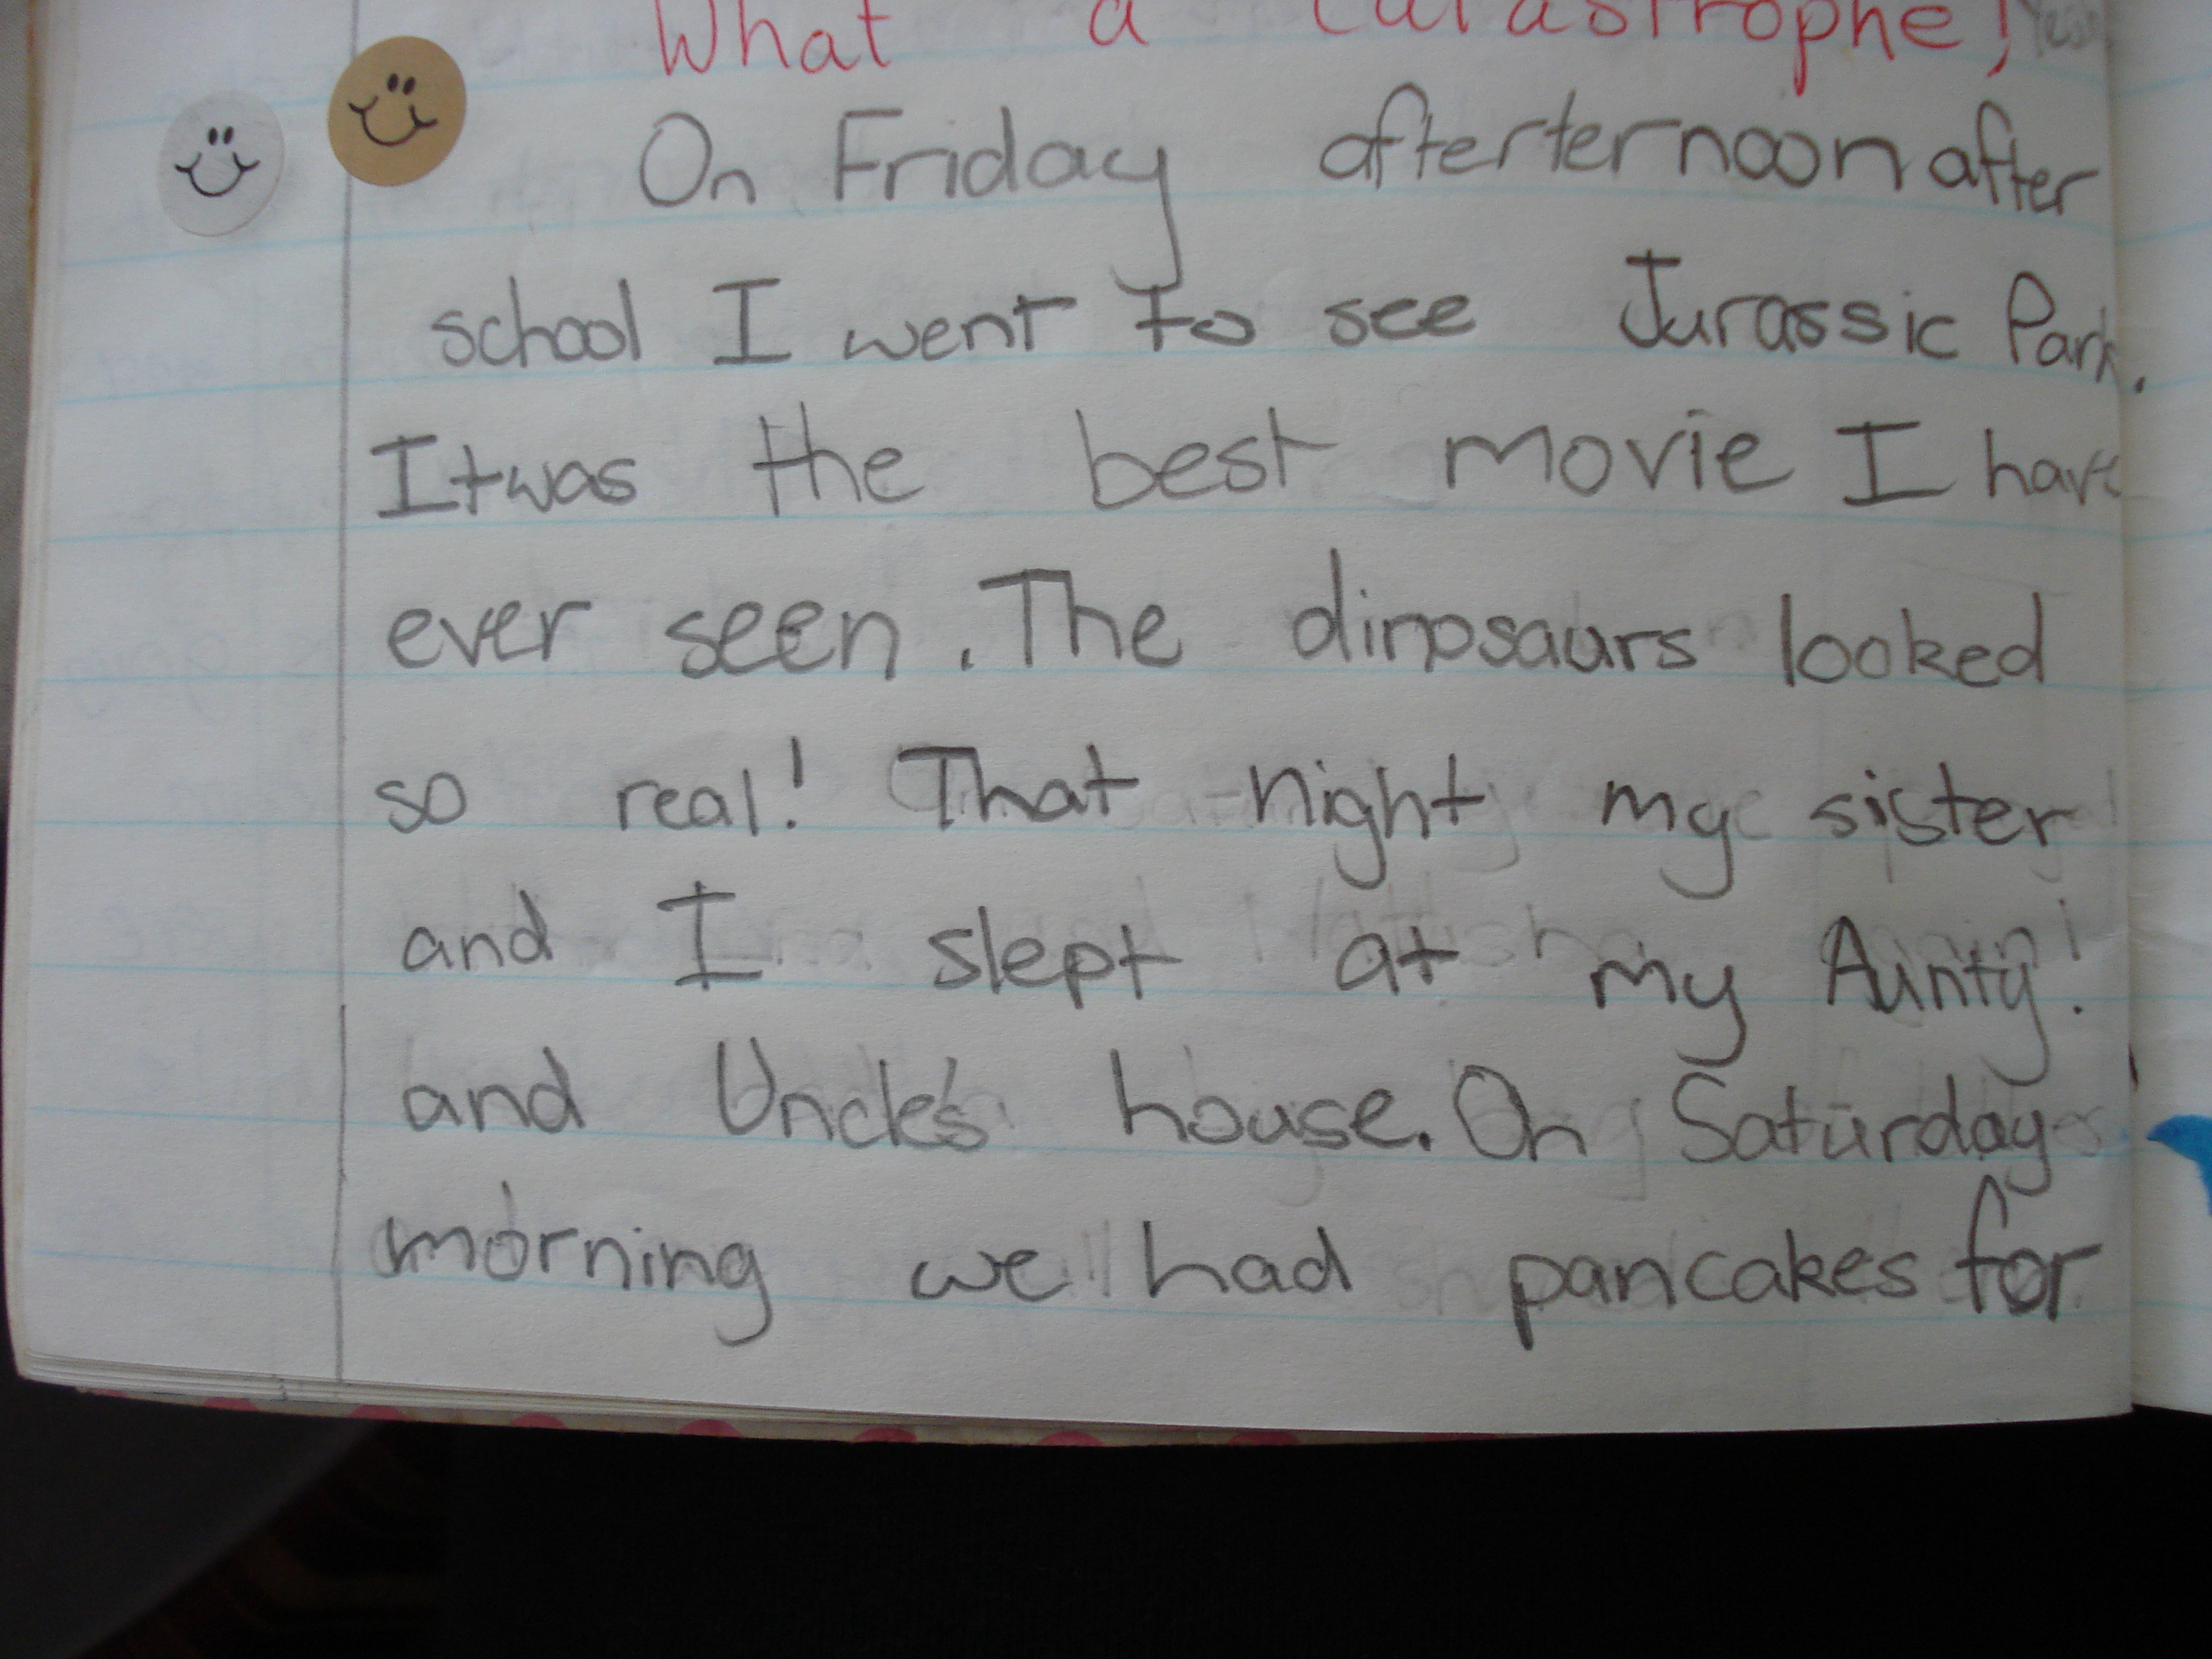 What a catastrophe!
On Friday afterternoon after
school I went to see Jurassic Park.
It was the best movie I have
ever seen. The dinosaurs looked
so real! That night my sister
and I slept at my Aunty!
and Uncle's house. On Saturday
morning we had pancakes for